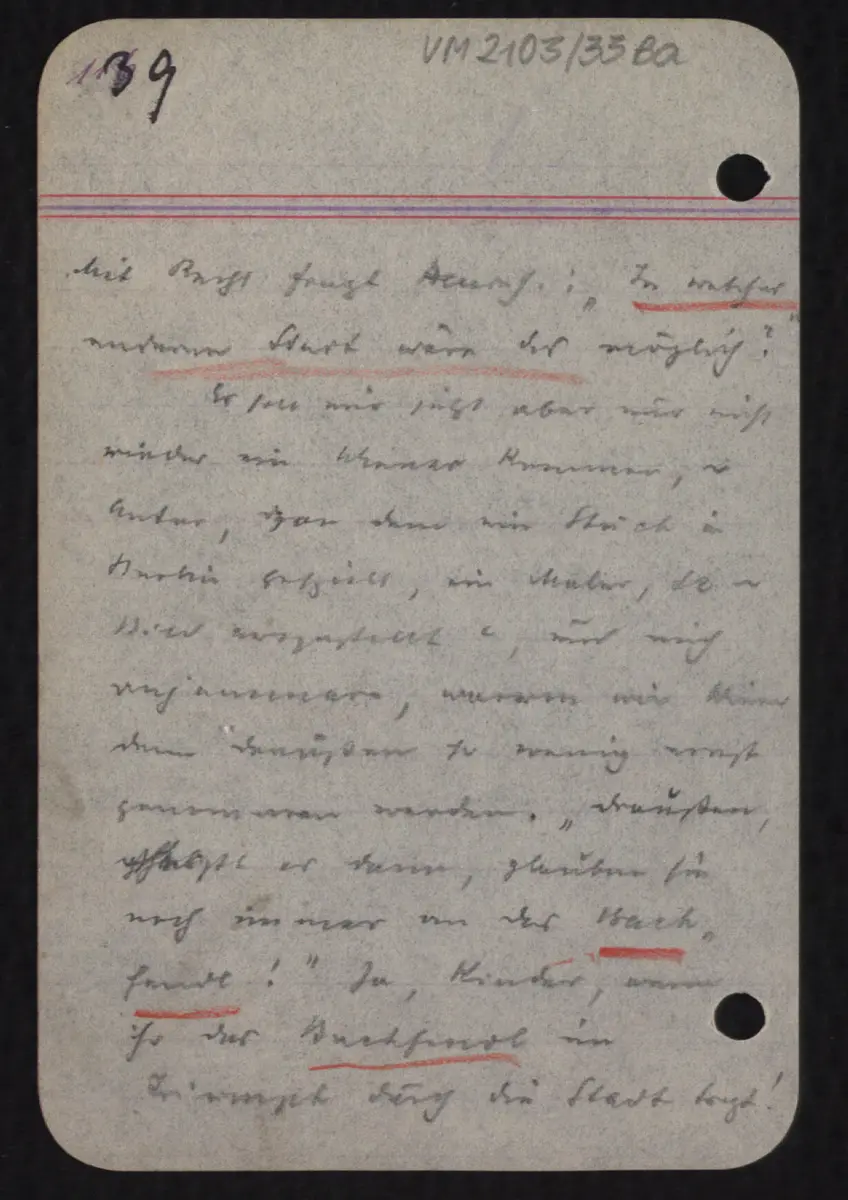 39
VM 2103/33 Ba
Mit Recht fragt : „In welcher
anderen Stadt wäre das möglich?"
Er soll mir jetzt aber nur nicht
wieder ein Wiener kommen, e
Autor, von dem ein Stück in
Berlin gespielt, ein Maler, de e
Bild ausgestellt , und mich
anjammern, warum wir Wiener
denn draußen so wenig ernst
genommen werden. „Draußen,
er dann, glauben sie
noch immer an das Back„
hendl!" Ja, Kinder, wenn
ihr das Backhendl im
Triumph durch die Stadt tragt!